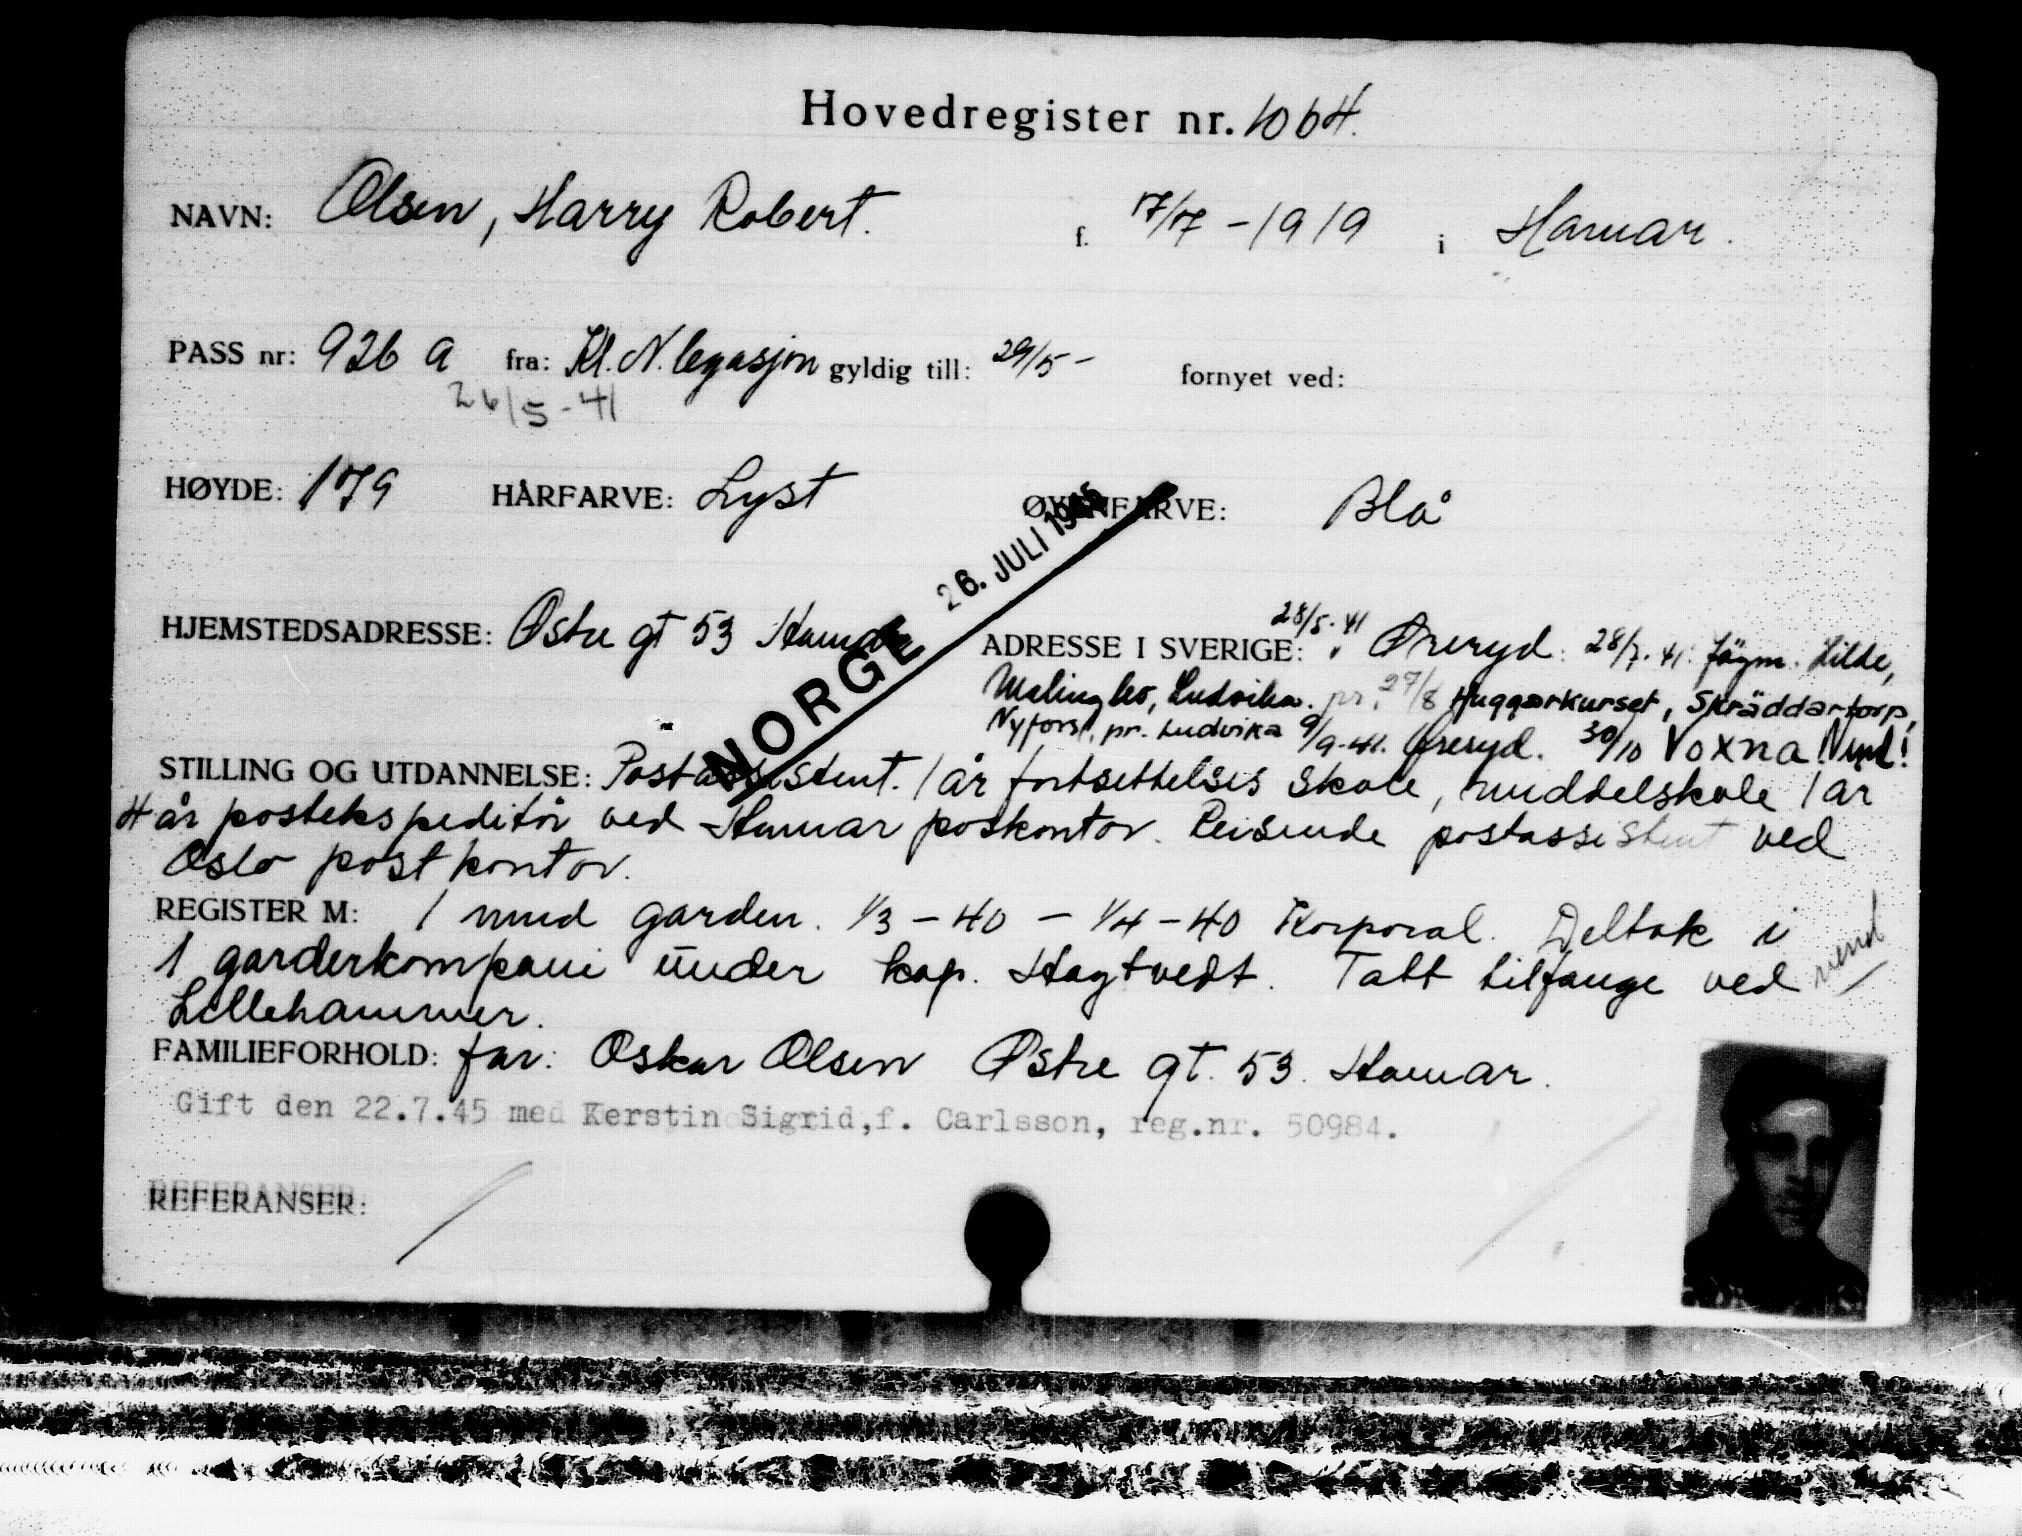 Hovedregister nr. 1064.
NAVN: Olsen, Harry Robert. f. 17/7 - 1919 i Hamar.
PASS nr: 926 A fra: Kl. N. legasjon gyldig till: 29/5 - fornyet ved:
26/5 - 41
HØYDE: 179 HÅRFARVE: Lyst ØYENFARVE: Blå
26. JULI 1945
NORGE
HJEMSTEDSADRESSE: Østre gt 53 Hamar
28/5. 41
ADRESSE I SVERIGE: Øreryd. 28/7. 41. Jägm. Hilde,
Malingsbo, Ludvika. pr. 27/8 Huggarkurset, Skräddartorp,
Nyfors, pr. Ludvika 9/9-41. Øreryd. 30/10 Voxna Vend!
STILLING OG UTDANNELSE: Postassistent. 1 år fortsettelses skole, middelskole 1 år
4 år postekspeditør ved Hamar poskontor. Reisende postassistent ved
Oslo postkontor.
REGISTER M: 1 mnd garden. 1/3 - 40 - 1/4 - 40 Korporal. Deltok i
1 garderkompani under kap. Hagtvedt. Tatt tilfange ved vend
Lillehammer.
FAMILIEFORHOLD: far: Oskar Olsen Østre gt. 53. Hamar.
Gift den 22.7.45 med Kerstin Sigrid, f. Carlsson, reg.nr. 50984.
REFERANSER: